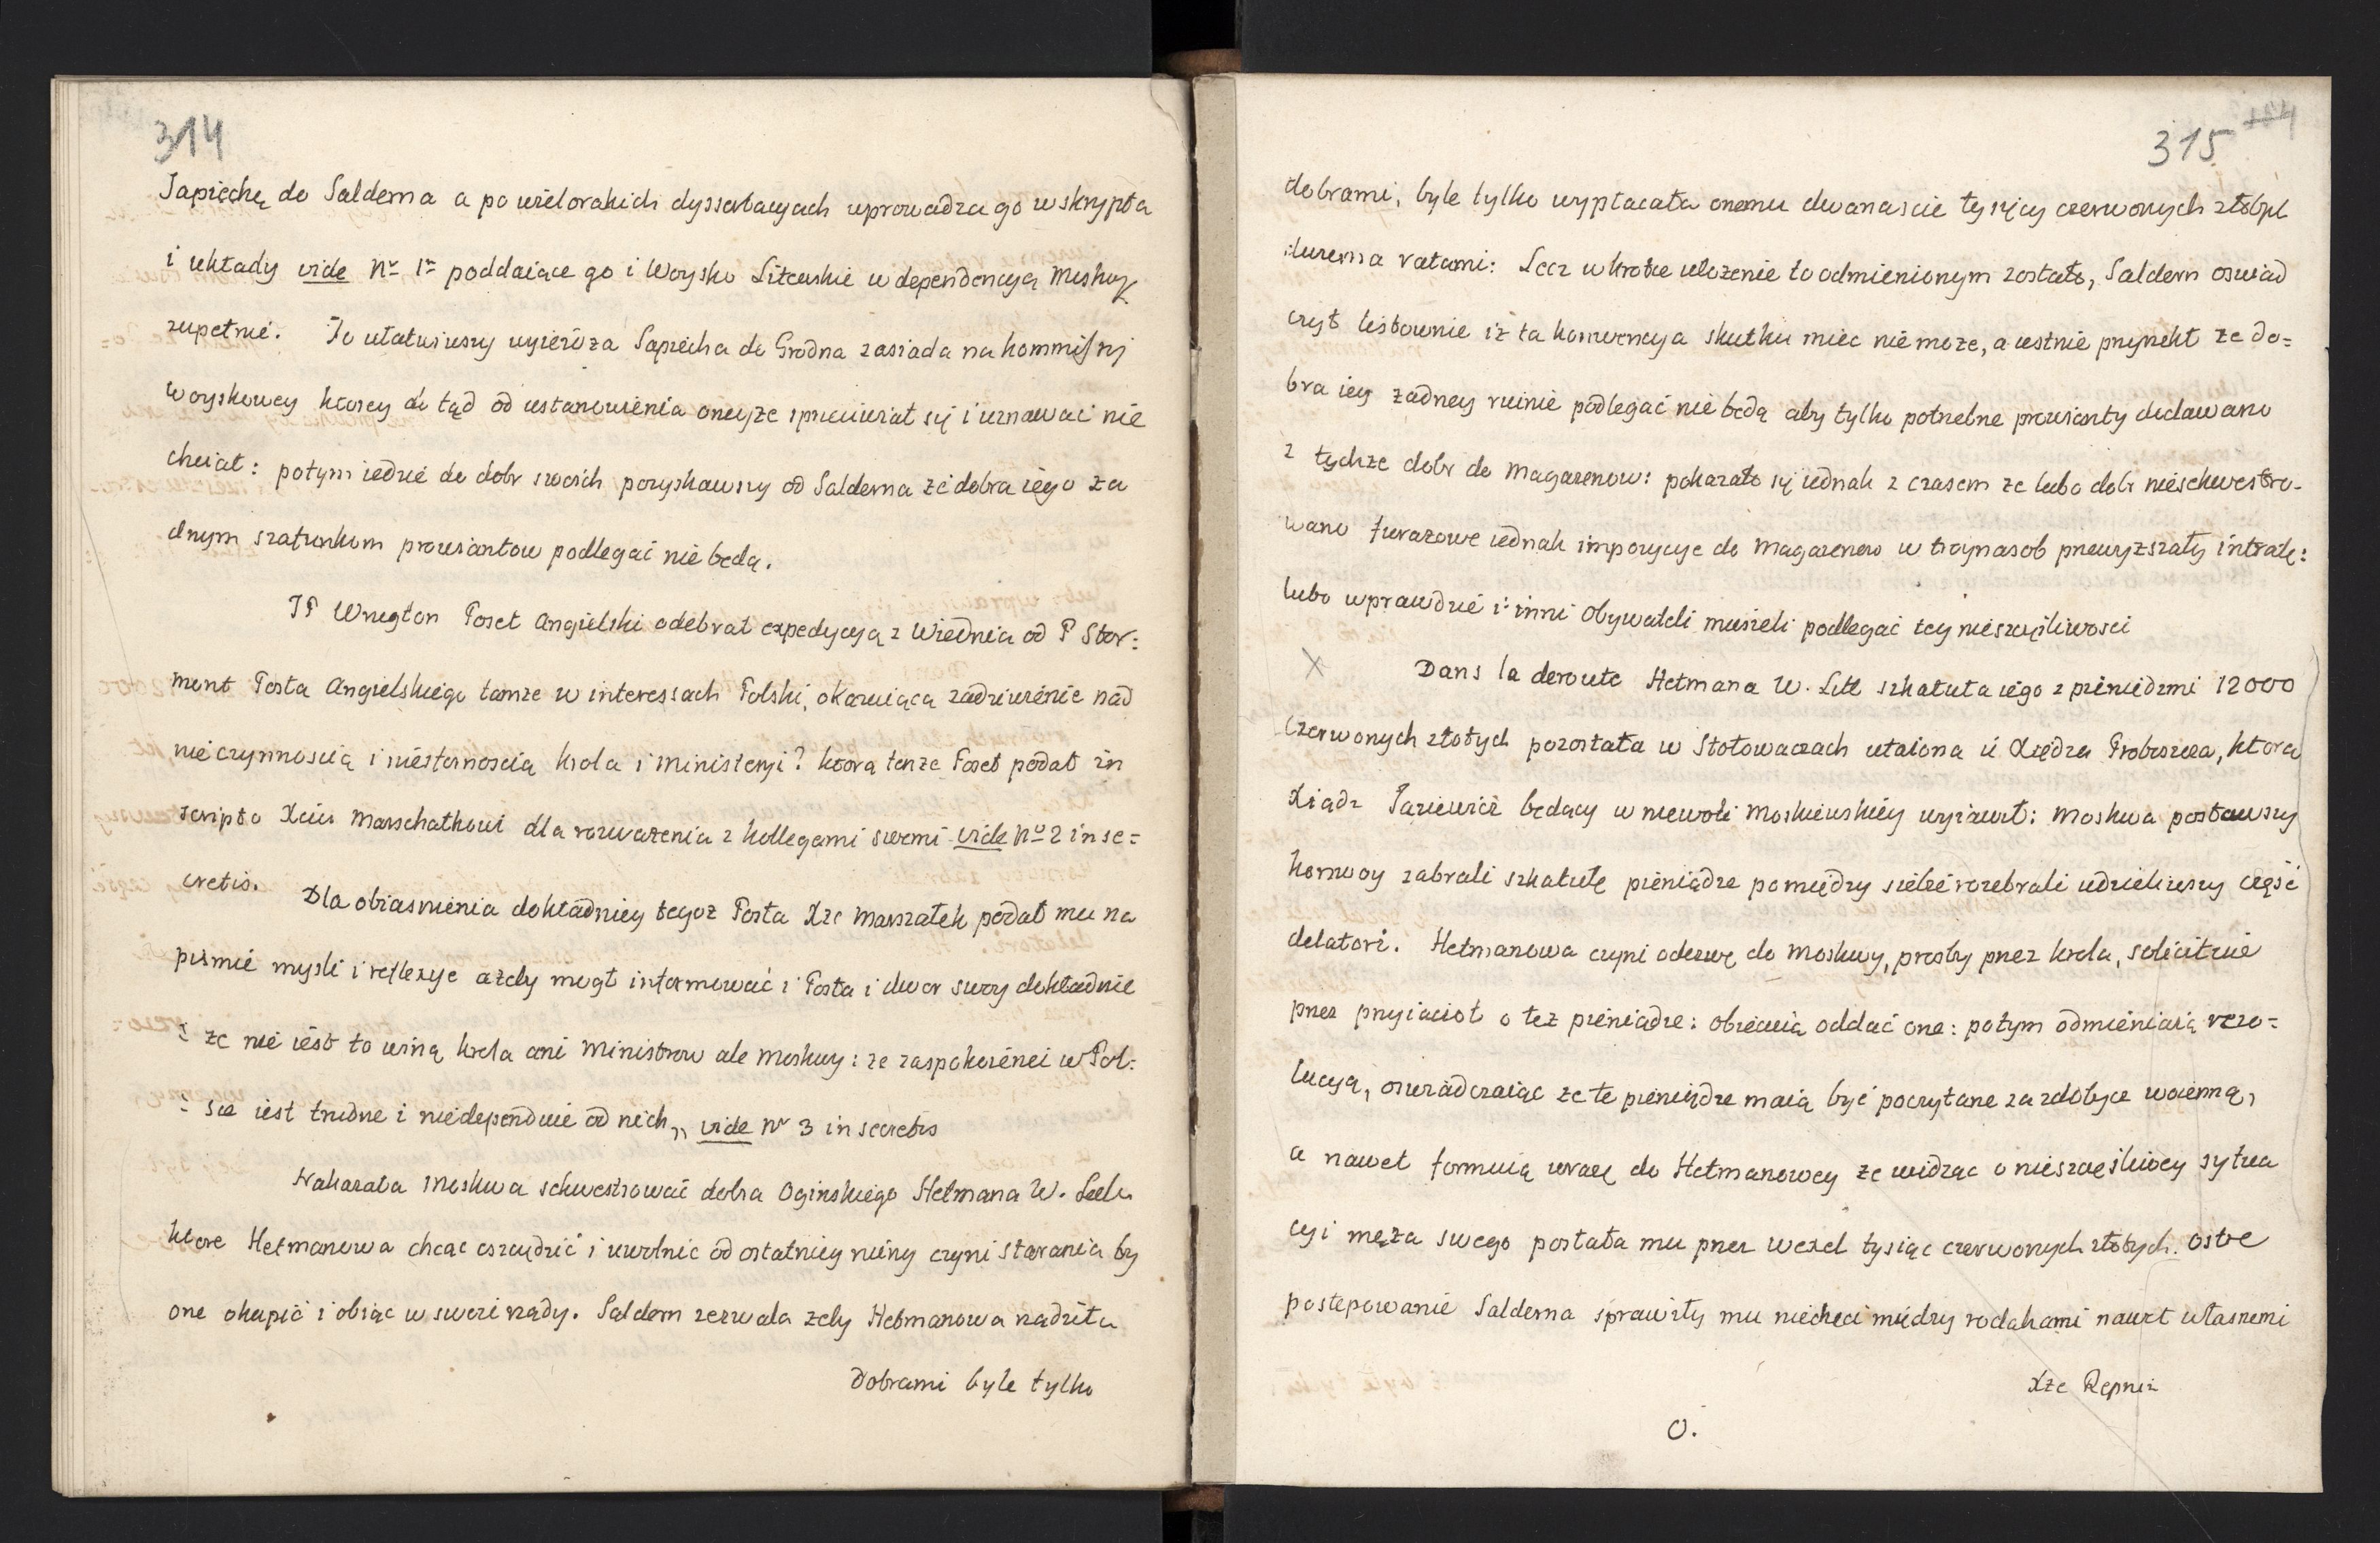 314
Sapiechę do Salderna a po wielorakich dyssertacyach wprowadza go w skrypta
i układy vide Nr 1r poddaiące go i Woysko Litewskie w dependencyą Moskwy
zupełnie. To ułatwiwszy wyieżdza Sapiecha do Grodna zasiada na kommissyi
woyskowey ktorey do tąd od ustanowienia oneyże sprzeciwiał się i uznawać nie
chciał: potym iedzie do dobr swoich pozyskawszy od Salderna że dobra iego ża
dnym szafunkom prowiantow podlegać nie bedą.
JP Wrugton Poseł Angielski odebrał expedycyą z Wiednia od P Stor:
mont Posła Angielskiego tamze w interessach Polski, okazuiącą zadziwienie nad
nieczynnoscią i niestałnoscią krola i ministeryi? ktorą tenze Poseł podał in
scripto Xciu Marschałkowi dla rozwazenia z kollegami swemi vide No 2 in se=
cretis.
Dla obiasnienia dokładniey tegoz Posła Xze Marszałek podał mu na
pismie mysli i reflexye azeby mogł informować i Posła i dwor swoy dokładnie
: ze nie iest to winą krola ani Ministrow ale Moskwy: ze zaspokoienei w Pol:
: sce iest trudne i niedependuie od nich,, vide Nr 3 in secretis
Nakazała Moskwa sekwestrować dobra Oginskiego Hetmana W. Litt
ktore Hetmanowa chcąc oszczędzić i uwolnic od ostatniey ruiny czyni starania by
one okupić i obiąc w swoie rządy. Saldern zezwala zeby Hetmanowa rządziła
Dobrami byle tylko
315
dobrami, byle tylko wypłacała onemu dwanascie tysięcy czerwonych złotych
dwiema ratami: Lecz w krotce ułozenie to odmienionym zostało, Saldern oswiad
czył listownie iz ta konwencya skutku miec nie moze, a ustnie przyrzekł ze do=
bra iey zadney ruinie podlegać nie bedą aby tylko potrzebne prowianty dodawano
z tychże dobr do Magazenow: pokazało się iednak z czasem ze lubo dobr niesekwestro-
wano furazowe iednak impozycye do Magazenow w troynasob przewyzszały intratę:
lubo wprawdzie i inni Obywateli musieli podlegać tey nieszczęśliwosci
X Dans la deroute Hetmana W. Litt szkatuła iego z pieniedzmi 12000
Czerwonych złotych pozostała w Stołowaczach utaiona u Xiędza Proboszcza, ktorą
Xiądz będący w niewoli Moskiewskiey wyiawił: Moskwa postawszy
konwoy zabrali szkatułę pieniądze pomiędzy siebie rozebrali udzieliwszy część
delatori. Hetmanowa czyni odezwę do Moskwy, prosby przez krola, solicituie
przez przyiacioł o też pieniądze: obiecuią oddać one: potym odmieniaią rezo=
lucyą, oswiadczaiąc ze te pieniądze maią być poczytane za zdobycz woienną,
a nawet formuią urazę do Hetmanowey ze widząc o nieszczęśliwey sytua
cyi męża swego posłała mu przez wexel tysiąc czerwonych złotych. Ostre
postepowanie Salderna sprawiły mu niecheci miedzy rodakami nawet własnemi
Xże Repnin
O.